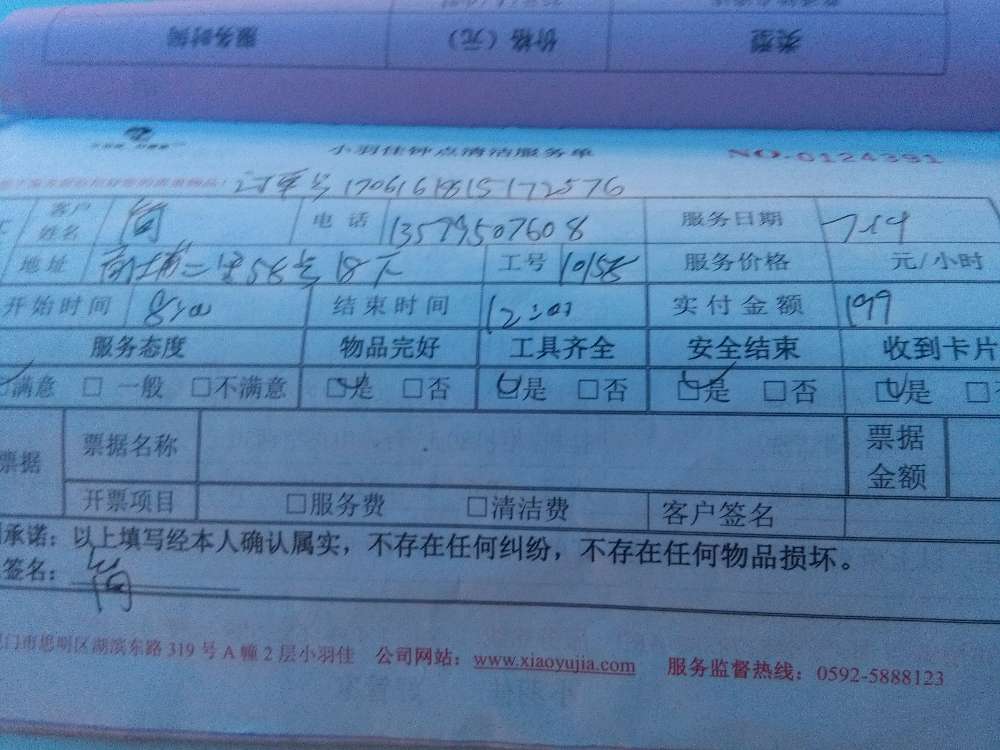 类型 价格（元） 服务时间
小羽佳钟点清洁服务单 NO.0124391
订单号
客户姓名 简 电话 13579507608 服务日期 7.19
地址 工号 服务价格 元/小时
开始时间 8:00 结束时间 12:00 实付金额 199
服务态度 物品完好 工具齐全 安全结束 收到卡片
满意 □ 一般 □不满意 □是 □否 □是 □否 □是 □否 □是 □
票据 票据名称 票据金额
开票项目 □服务费 □清洁费 客户签名
承诺：以上填写经本人确认属实，不存在任何纠纷，不存在任何物品损坏。
签名：简
门市思明区湖滨东路 319 号 A 幢 2 层小羽佳 公司网站：www.xiaoyujia.com 服务监督热线：0592-5888123